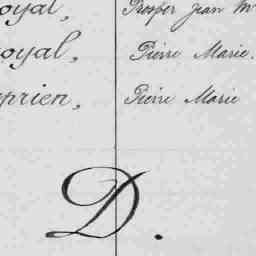 oyal, Prosper Jean M
oyal, Pierre Marie.
prien, Pierre Marie
D.